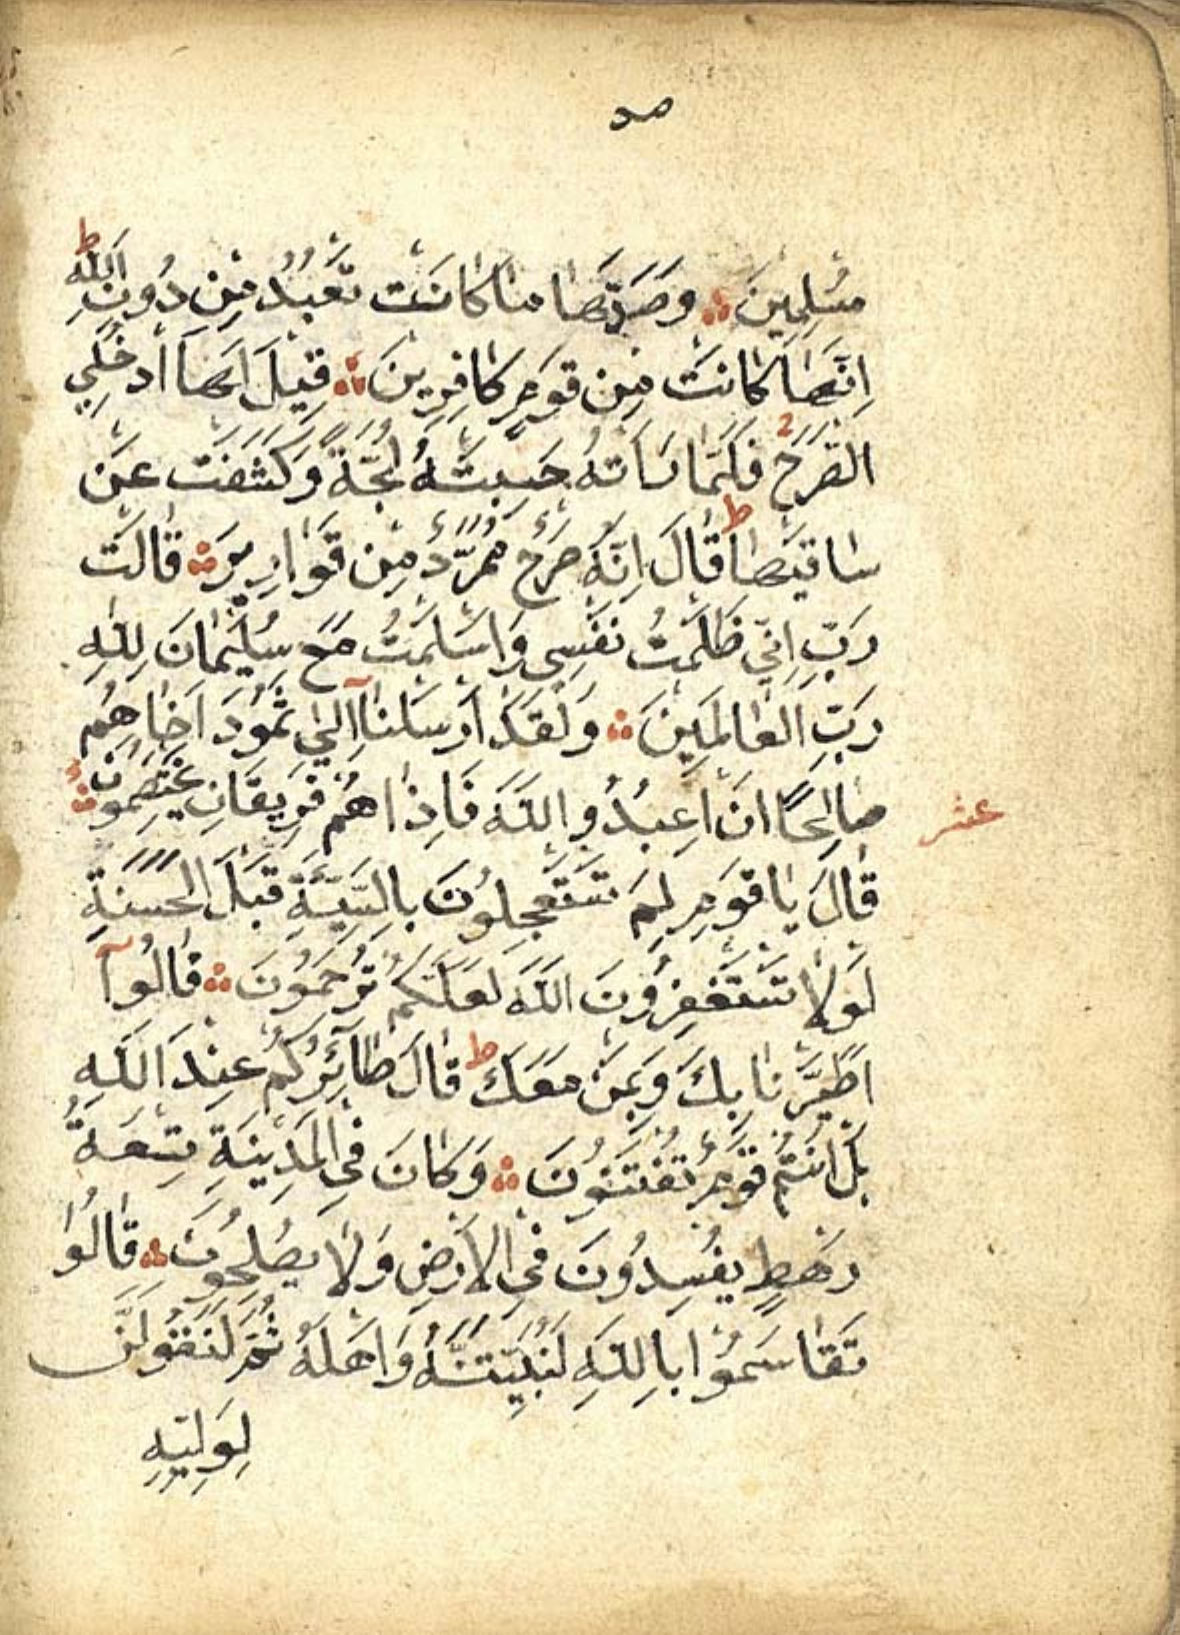 مُسْلِمِينَ ۞ وَصَدَّهَا مَا كَانَتْ تَعْبُدُ مِنْ دُونِ اللّٰهِ ط
اِنَّهَا كَانَتْ مِنْ قَوْمٍ كَافِرِينَ ۞ قِيلَ لَهَا ادْخُلِي
الصَّرْحَ فَلَمَّا رَاَتْهُ حَسِبَتْهُ لُجَّةً وَكَشَفَتْ عَنْ
سَاقَيْهَا ط قَالَ اِنَّهُ صَرْحٌ مُمَرَّدٌ مِنْ قَوَارِيرَ ۞ قَالَتْ
رَبِّ اِنِّي ظَلَمْتُ نَفْسِي وَاَسْلَمْتُ مَعَ سُلَيْمَانَ لِلّٰهِ
رَبِّ الْعَالَمِينَ ۞ وَلَقَدْ اَرْسَلْنَآ اِلٰي ثَمُودَ اَخَاهُمْ
صَالِحًا اَنِ اعْبُدُوا اللّٰهَ فَاِذَا هُمْ فَرِيقَانِ يَخْتَصِمُونَ ۞
عشر
قَالَ يَا قَوْمِ لِمَ تَسْتَعْجِلُونَ بِالسَّيِّئَةِ قَبْلَ الْحَسَنَةِ
لَوْلَا تَسْتَغْفِرُونَ اللّٰهَ لَعَلَّكُمْ تُرْحَمُونَ ۞ قَالُوآ
اطَّيَّرْنَا بِكَ وَبِمَنْ مَعَكَ ط قَالَ طَآئِرُكُمْ عِنْدَ اللّٰهِ
بَلْ اَنْتُمْ قَوْمٌ تُفْتَنُونَ ۞ وَكَانَ فِي الْمَدِينَةِ تِسْعَةُ
رَهْطٍ يُفْسِدُونَ فِي الْاَرْضِ وَلَا يُصْلِحُونَ ۞ قَالُوا
تَقَاسَمُوا بِاللّٰهِ لَنُبَيِّتَنَّهُ وَاَهْلَهُ ثُمَّ لَنَقُولَنَّ
لِوَلِيِّهِ